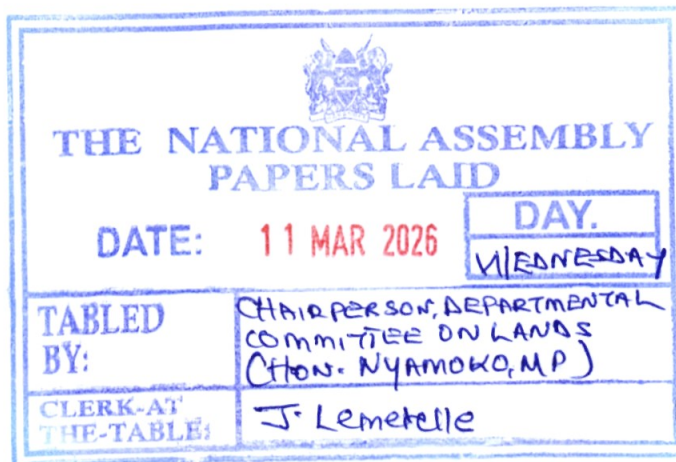 THE NATIONAL ASSEMBLY
PAPERS LAID
DATE: 11 MAR 2026
DAY.
WEDNESDAY
TABLED BY:
CHAIRPERSON, DEPARTMENTAL
COMMITTEE ON LANDS
(HON. NYAMOKO, MP)
CLERK-AT
THE-TABLE:
J. Lemerelle